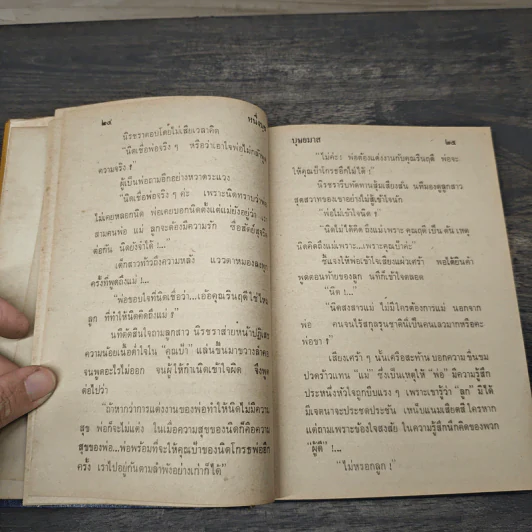 ๒๔
นีรชราตอบโดยไม่เสียเวลาคิด
"นิดเชื่อพ่อจริง ๆ หรือว่าเอาใจพ่อไม่กล้าพูด
ความจริง ?"
ผู้เป็นพ่อถามอีกอย่างหวาดระแวง
"นิดเชื่อพ่อจริง ๆ ค่ะ เพราะนิดทราบว่าพ่อ
ไม่เคยหลอกนิด พ่อเคยบอกนิดตั้งแต่แม่ยังอยู่ว่า
สามคนพ่อ แม่ ลูกจะต้องมีความรัก ซื่อสัตย์สุจริต
ต่อกัน นิดยังจำได้ !..."
เด็กสาวท้าวถึงความหลัง แววตาหม่นลงทุก
ครั้งที่พูดถึงแม่ !...
"พ่อขอบใจที่นิดเชื่อว่า...เอ้อคุณรินฤดีใช่ไหม
ลูก ที่ทำให้นิดคิดถึงแม่ ?"
นทีตัดสินใจถามลูกสาว นีรชราส่ายหน้าปฏิเสธ
ความน้อยเนื้อต่ำใจใน "คุณป้า" แล่นขึ้นมาขวางลำคอ
จนพูดอะไรไม่ออก จนผู้ให้กำเนิดเข้าใจผิด จึงพูด
ต่อไปว่า
"ถ้าหากว่าการแต่งงานของพ่อทำให้นิดไม่มีความ
สุข พ่อก็จะไม่แต่ง ในเมื่อความสุขของนิดก็คือความ
สุขของพ่อ...พ่อพร้อมที่จะให้คุณป้าของนิดโกรธพ่ออีก
ครั้ง เราไปอยู่กันตามลำพังอย่างเก่าก็ได้"
บุษอมาส ๒๕
"ไม่ค่ะ! พ่อต้องแต่งงานกับคุณรินฤดี พ่อจะ
ให้คุณป้าโกรธอีกไม่ได้ !"
นีรชรารีบคัดค้านลิ้มเสียงสั่น นทีมองดูลูกสาว
สุดสวาทของเขาอย่างไม่สู้เข้าใจนัก
"พ่อไม่เข้าใจนิด ?"
"นิดไม่ได้คิดถึงแม่เพราะ คุณฤดี เป็นต้นเหตุ
นิดคิดถึงแม่เพราะ...เพราะคุณป้าค่ะ"
ชี้แจงให้พ่อเข้าใจเสียงแผ่วเศร้า พอได้ยินคำ
พูดตอนท้ายของลูก นทีก็เข้าใจตลอด
"นิด !..."
"นิดสงสารแม่ ไม่มีใครต้องการแม่ นอกจาก
พ่อ คนจนไร้สกุลรุนชาตินี่เป็นคนเลวมากหรือคะ
พ่อขา ?"
เสียงเศร้า ๆ นั้นเครือสะท้าน บอกความขื่นขม
ปวดร้าวแทน "แม่" ซึ่งเป็นเหตุให้ "พ่อ" มีความรู้สึก
ประหนึ่งหัวใจถูกบีบแรง ๆ เพราะเขารู้ว่า "ลูก" มิได้
มีเจตนาจะประชดประชัน เหน็บแนมเสียดสีใครหาก
แต่ถามเพราะข้องใจสงสัย ในความรู้สึกนึกคิดของพวก
"ผู้ดี" !...
"ไม่หรอกลูก !"